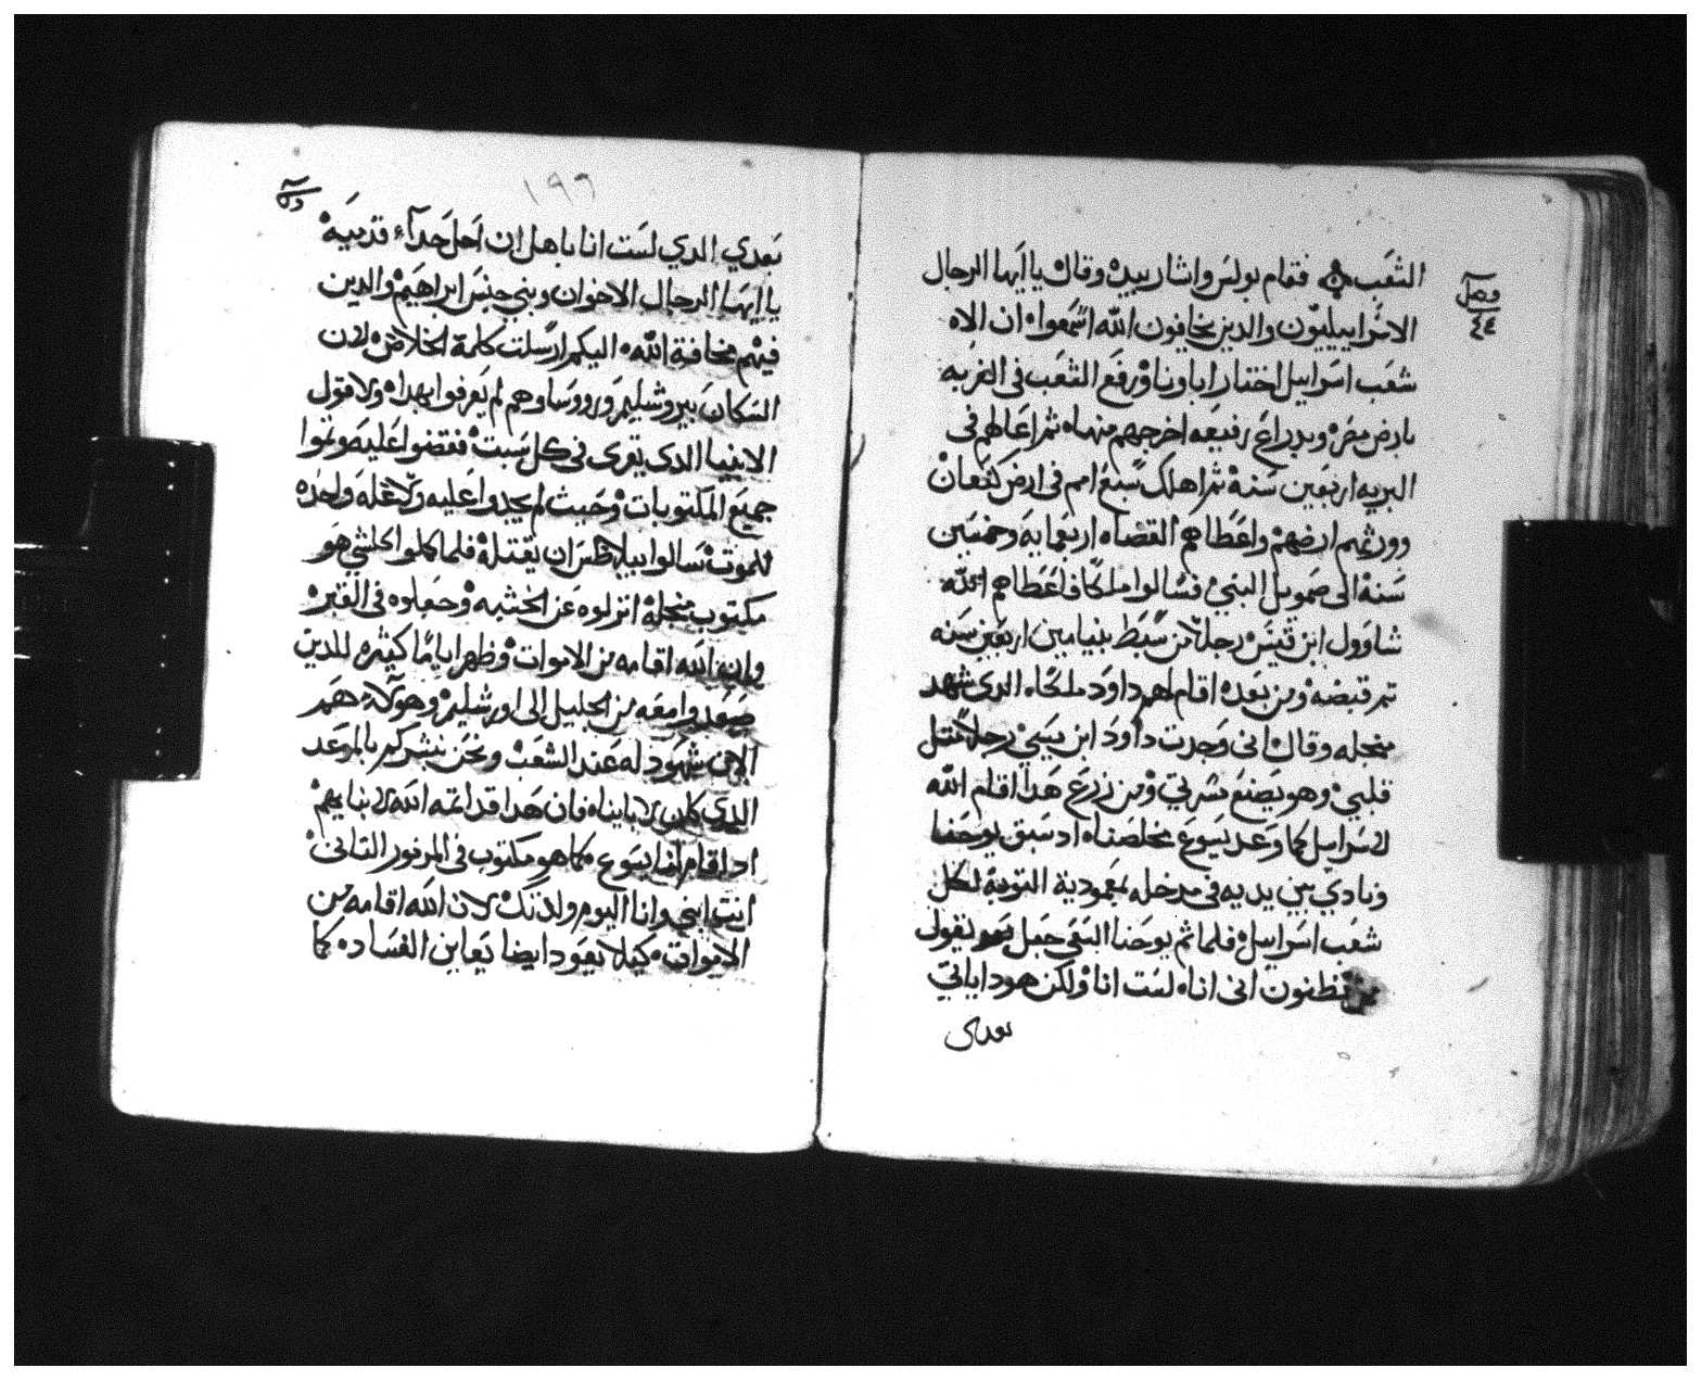 الشعب فقام بولس واشار بيده وقال يا ايها الرجال
فصل
٤٤
الاسراييليون والدين يخافون الله اسمعوا ان الاه
شعب اسراييل اختار اباونا ورفع الشعب فى الغربه
بارض مصر وبدراع رفيعه اخرجهم منها ثم اعالهم فى
البريه اربعين سنة ثم اهلك سبع امم فى ارض كنعان
وورثهم ارضهم واعطاهم القضاه اربعمايه وخمسين
سنة الى صمويل النبي فسالوا ملكا فاعطاهم الله
شاوول ابن قيس رجلا من سبط بنيامين اربعين سنه
ثم قبضه ومن بعده اقام لهم داود ملكا الدى شهد
منجله وقال انى وجدت داود ابن يسي رجلا مثل
قلبي وهو يصنع مسرتي ومن زرع هدا اقام الله
لاسراييل كما وعد يسوع مخلصنا اد سبق يوحنا
ونادي بين يديه فى مدخله بمعمودية التوبة لكل
شعب اسراييل فلما تم يوحنا السعى جعل يقول
من تظنون انى انا لست انا ولكن هودا ياتي
بعدى
١٩٦
بعدي الدي لست انا باهل ان احل حدآء قدميه
يا ايها الرجال الاخوان وبني جنس ابراهيم والدين
فيهم مخافة الله اليكم ارسلت كلمة الخلاص لان
السكان بيروشليم وروساوهم لم يعرفوا بهدا ولا قول
الانبيا الدى يقرى فى كل سبت فقضوا عليه وتموا
جميع المكتوبات وحيث لم يجدوا عليه ولا عله واحده
للموت سالوا بيلاطس ان يقتله فلما كملوا كلشي هو
مكتوب منجله انزلوه عن الخشبه وجعلوه فى القبر
وان الله اقامه من الاموات وظهر اياما كثيره للدين
صعدوا معه من الجليل الى اورشليم وهولاء هم
الان شهود له عند الشعب ونحن نبشركم بالموعد
الدي كان لاباينا فان هدا قد اتمه الله لابنايهم
اد اقام لنا يسوع كما هو مكتوب فى المزمور التانى
انت ابني وانا اليوم ولدتك لان الله اقامه من
الاموات كيلا يعود ايضا يعاين الفساد كما